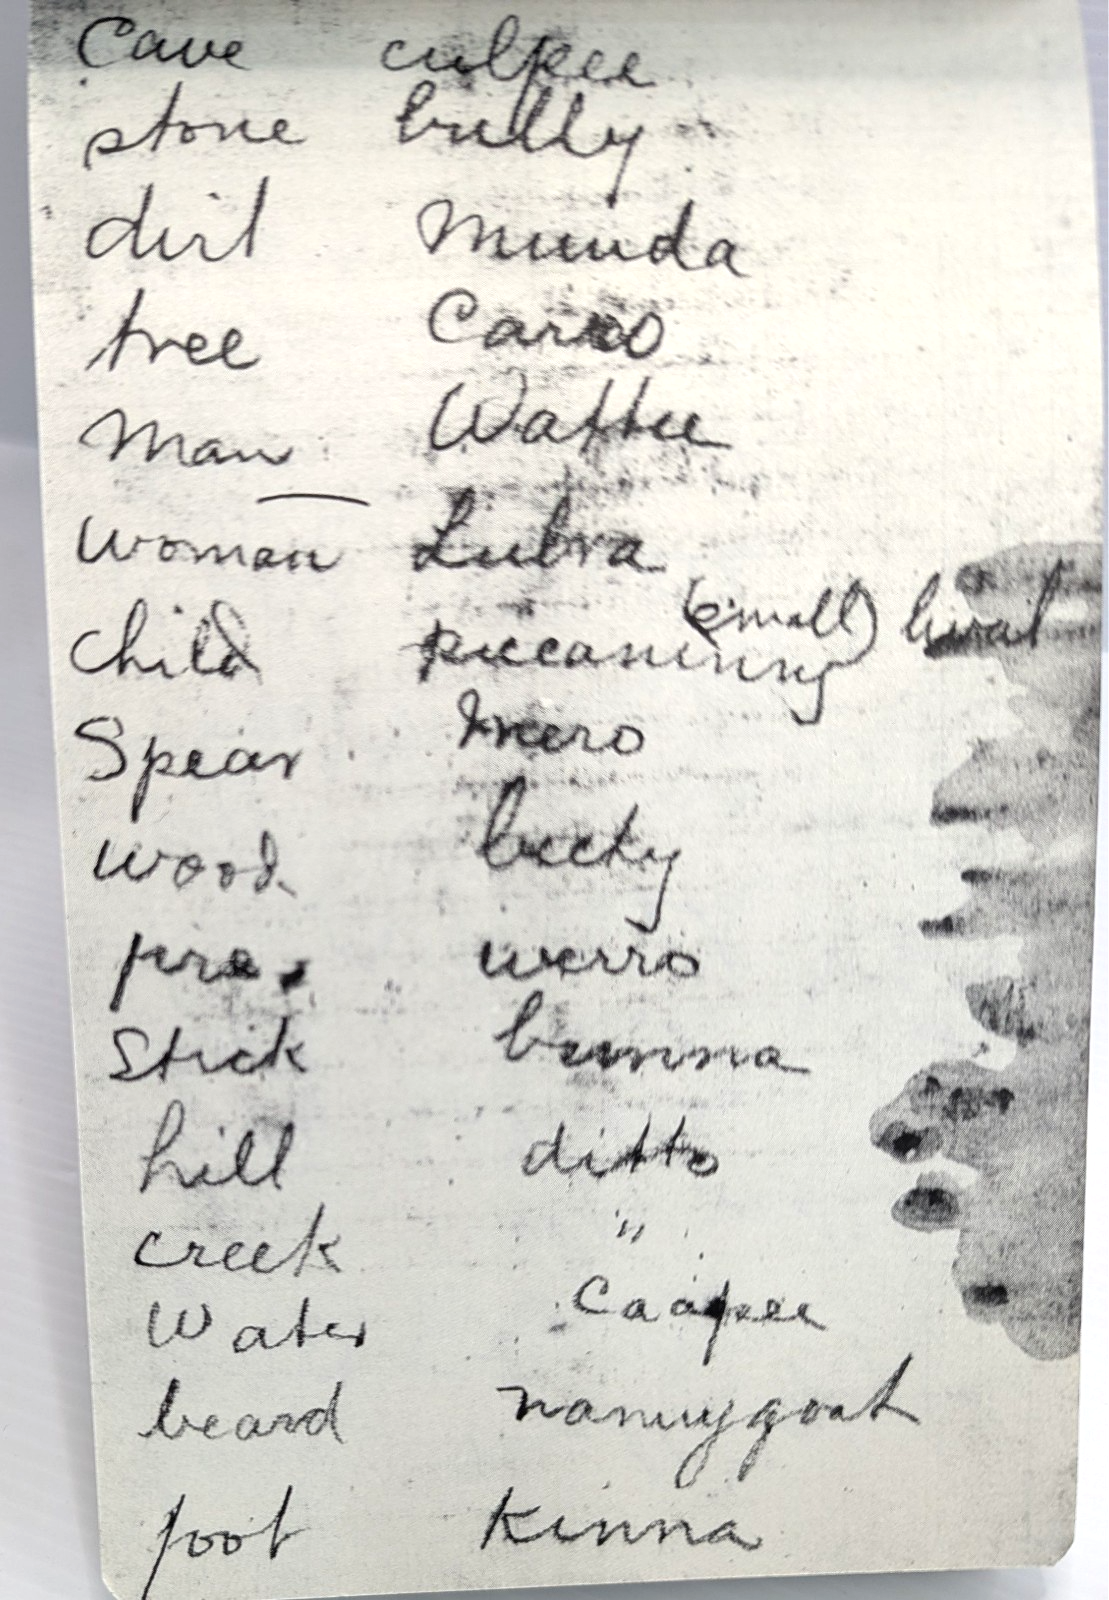 Cave culpee
stone bully
dirt Munda
tree Carro
Man Wattee
Woman Lubra
Child piccaninny (small)
Spear
wood becky
fire werro
Stick bunna
hill ditto
creek "
Water Caapee
beard nannygoat
foot Kinna